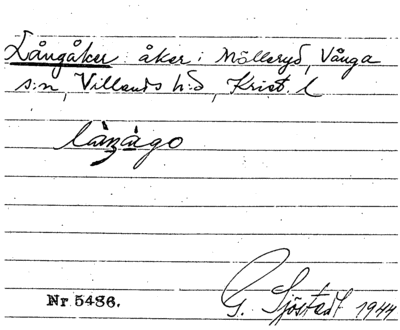 Långåker: åker i Mölleryd, Vånga
s:n, Villands h:d, Krist. l
làŋàgo
Nr 5486.
G. Sjöstedt 1944